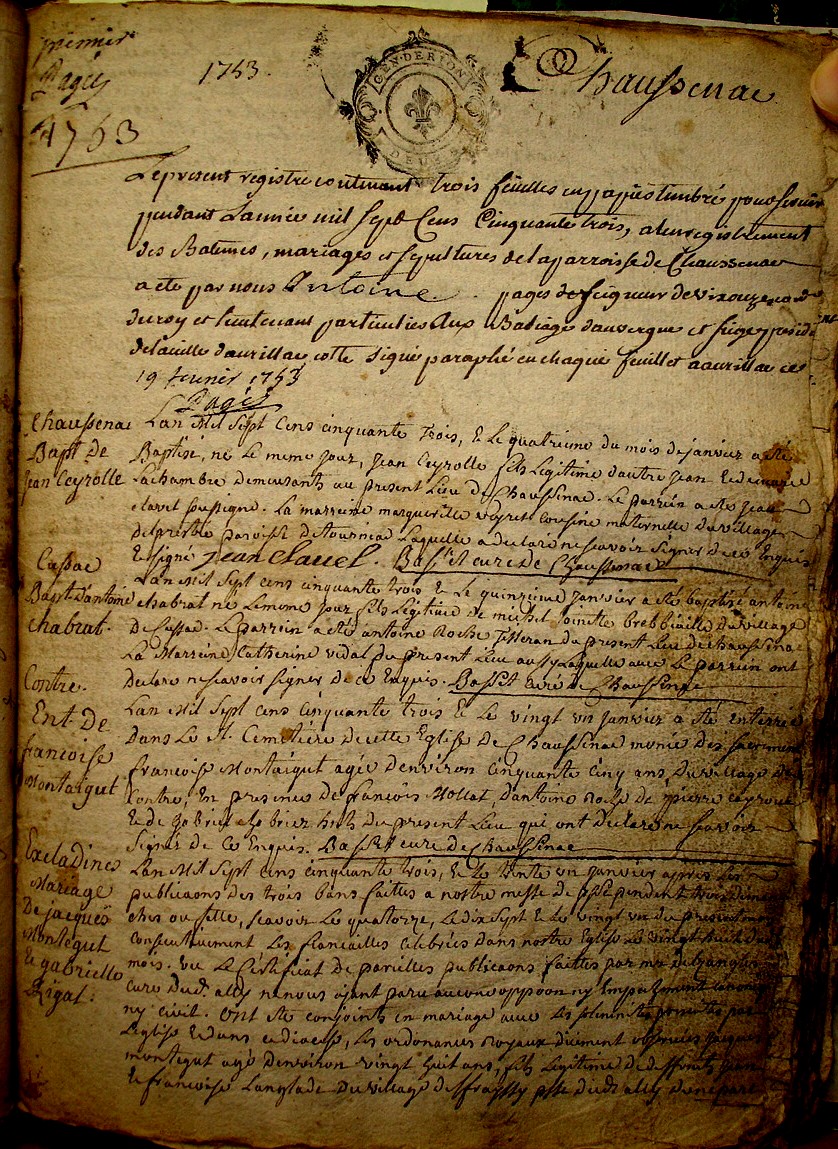 premier
Pages
1753
1753.
GEN.DE RION
DEUX
Chaussenac
Le present registre contenant trois feuilles en papier timbré pour servir
pendant Lannée mil sept Cens Cinquante trois, a lenregistrement
des Batêmes, mariages et sepultures de la parroisse de Chaussenac
a été par nous Antoine pages de seigneur de vixouze
du roy et lieutenant particulier aux Baliage dauvergne et siege presidi
de la ville daurillac cotté signé paraphé en chaque feuillet a aurillac ce
19 fevrier 1753
Pagés
Chaussenac
Bapt. de
Jean Ceyrolle
Lan Mil Sept Cens cinquante trois, & le quatrieme du mois de janvier a été
Baptisé, né le meme jour, Jean Ceyrolle fils Legitime dautre jean &
Lachambre demeurants au present Lieu de Chaussenac. Le parrein a été jean
clavel soussigné. La marreine marguerite veyret cousine maternelle du village
de paroisse de tourniac Laquelle a declaré ne scavoir signer de ce Enquis
& signé jean Clavel. Bassit curé de Chaussenac
Cassac
Bapt. d'antoine
chabrat.
Lan Mil Sept cens cinquante trois & le quinzieme janvier a été baptisé antoine
chabrat né le meme jour fils Légitime de michel & jointte brebbiaille du village
de Cassac. Le parrein a été antoine Roche du present Lieu de chaussenac
La Marreine Catherine vidal du present Lieu aussy Laquelle avec Le parrein ont
declaré ne scavoir signer de ce Enquis. Bassit curé de Chaussenac
Contre.
Ent. de
francoise
Montaigut
Lan Mil Sept cens cinquante trois & Le vingt un janvier a été enterrée
dans Le St. Cemetiere de cette Eglise de Chaussenac munie des sacrements
francoise Montaigut agée denviron cinquante cinq ans, du village de
Contre, En presence de francois Mollat, dantoine Roche de pierre ceyrolle
& de gabriel du present Lieu qui ont declaré ne scavoir
signer de ce Enquis. Bassit curé de Chaussenac
Escladines
Mariage
De jacques
Montegut
& gabrielle
Rigal.
Lan Mil Sept cens cinquante trois, & Le trente un janvier apres Les
publicaons des trois bans faittes a notre messe de psse pendent trois diman
ches ou fette, scavoir Le quatorze, Le dix sept & Le vingt un du present mois
consecutivement Les fiancailles celebrées dans notre Eglise Le vingt huit du
mois. vu Le Certificat de pareilles publicaons faittes par mr
curé dud. ally ne nous ayant paru aucune oppoon ny Empechement canonique
ny civil. Ont été conjoints en mariage avec Les solemnités prescrites par
Leglise & dans ce dioceze, Les ordonances royaux duement observées jacques
montegut agé denviron vingt huit ans, fils Legitime de deffunts jean
& francoise Langlade du village psse dud. ally dune part